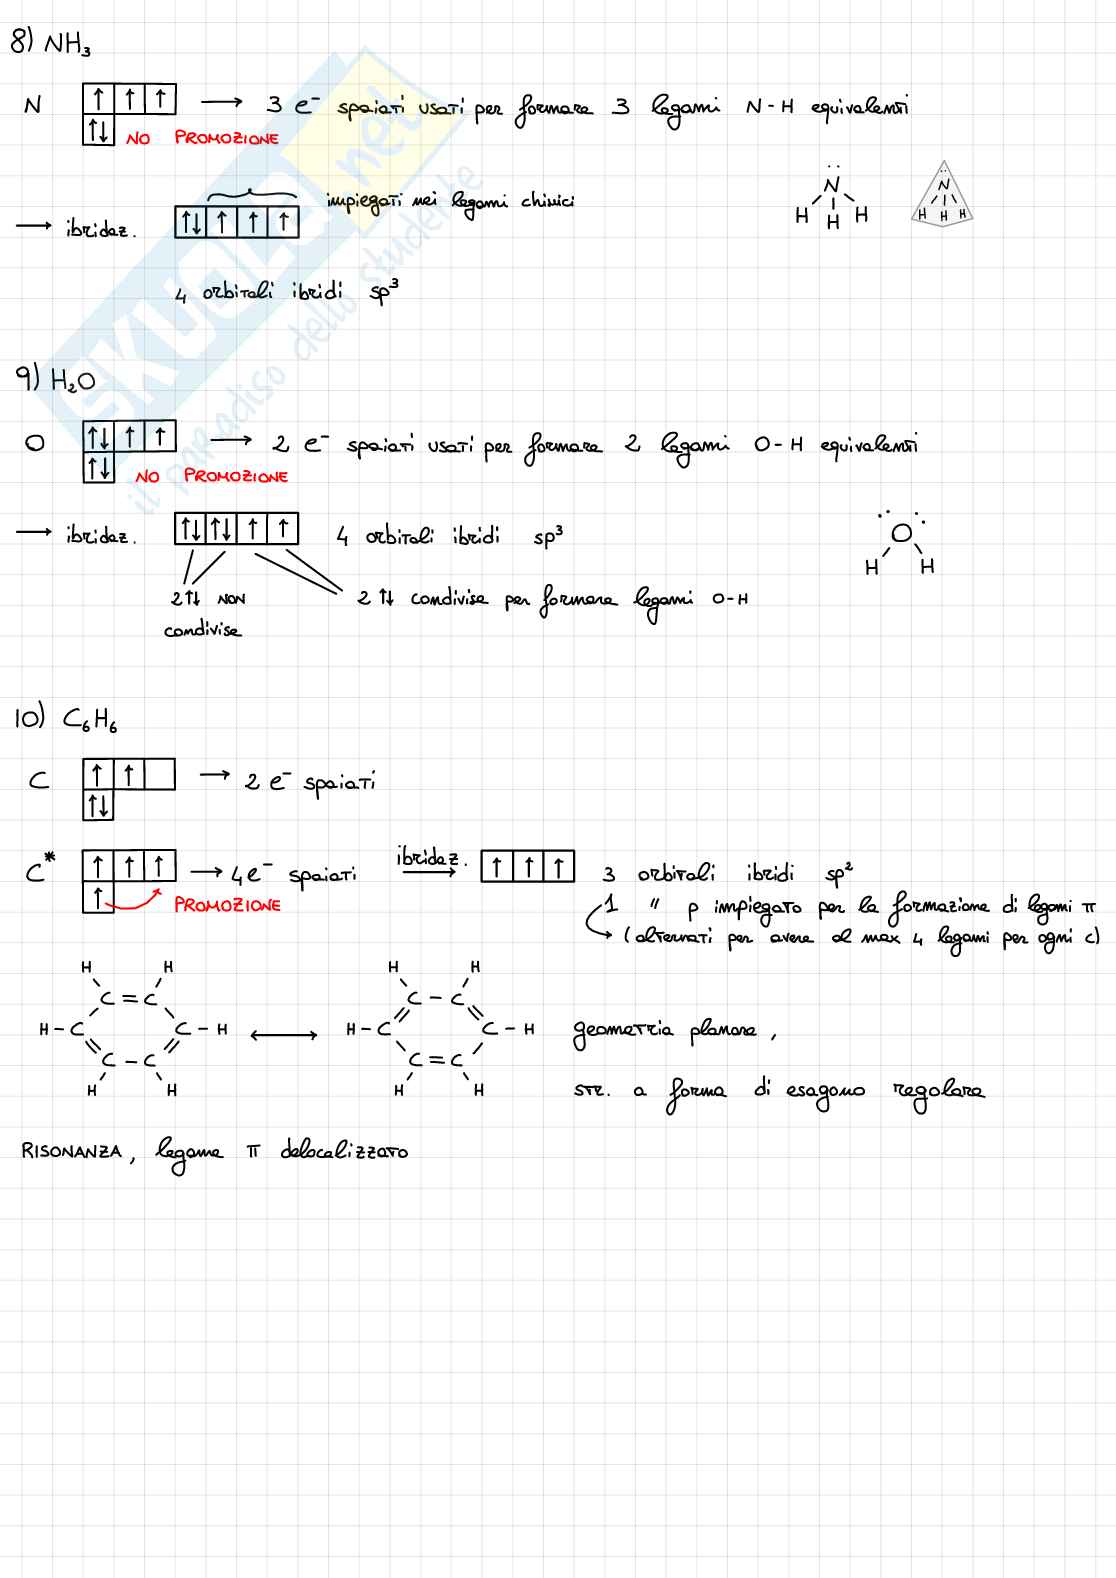 8) NH₃
N ↑ ↑ ↑ → 3 e⁻ spaiati usati per formare 3 legami N-H equivalenti
↑↓ NO PROMOZIONE
→ ibridaz. ↑↓ ↑ ↑ ↑ impiegati nei legami chimici
4 orbitali ibridi sp³
N
H H H
N
H H H
9) H₂O
O ↑↓ ↑ ↑ → 2 e⁻ spaiati usati per formare 2 legami O-H equivalenti
↑↓ NO PROMOZIONE
→ ibridaz. ↑↓ ↑↓ ↑ ↑ 4 orbitali ibridi sp³
2↑↓ NON condivise
2 ↑↓ condivise per formare legami O-H
O
H H
10) C₆H₆
C ↑ ↑ → 2 e⁻ spaiati
↑↓
C* ↑ ↑ ↑ → 4e⁻ spaiati ibridaz. → ↑ ↑ ↑ 3 orbitali ibridi sp²
↑ PROMOZIONE
1 " p impiegato per la formazione di legami π
→ (alternati per avere al max 4 legami per ogni C)
H H H H
C = C C - C
H - C C - H ↔ H - C C - H geometria planare,
C - C C = C
H H H H str. a forma di esagono regolare
RISONANZA, legame π delocalizzato
SKUOLA.net
il paradiso dello studente